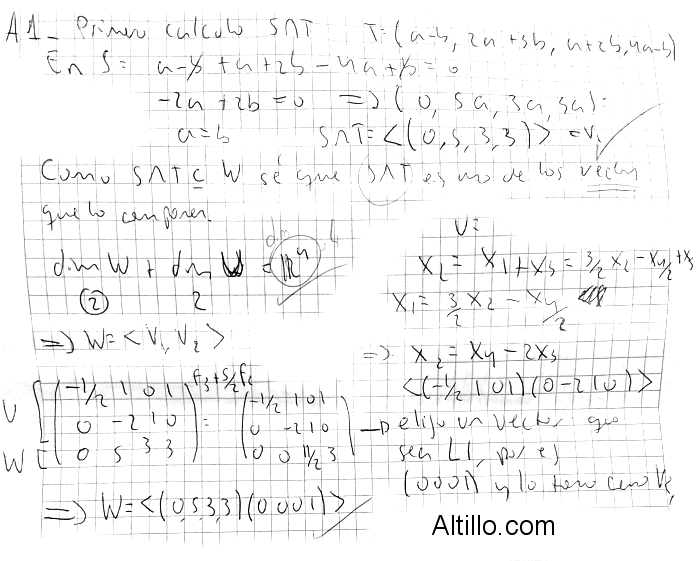 A1_ Primero calculo S∩T T=(a-b, 2a+3b, a+2b, 4a-b)
En S= a-b+a+2b-4a+b=0
-2a+2b=0 => (0, 5a, 3a, 3a)=
a=b S∩T=<(0,5,3,3)> =V₁
Como S∩T ⊆ W sé que S∩T es uno de los
que lo componen.
dim W + dim = ℝ⁴
② 2
=> W=<V₁,V₂>
U=
X₂= X₁+X₃=3/2X₂-X₄/2+X₃
X₁=3/2 X₂-X₄/2
=> X₂=X₄-2X₃
<(-1/2 1 0 1)(0 -2 1 0)>
U (-1/2 1 0 1) F₃+5/2F₂ (-1/2 1 0 1)
0 -2 1 0 = 0 -2 1 0
W 0 5 3 3 0 0 11/2 3
-> elijo un vector que
sea LI, por ej
(0001) y lo tomo como V₂
=> W=<(0,5,3,3)(0001)>
Altillo.com